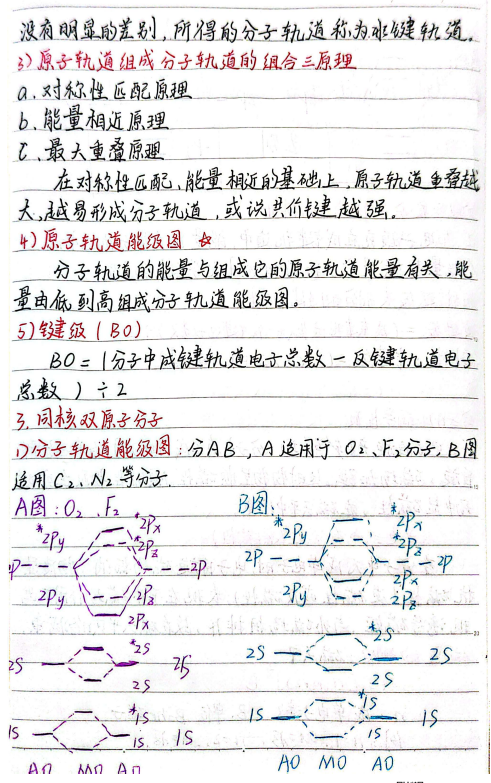 没有明显的差别，所得的分子轨道称为非键轨道。
3）原子轨道组成分子轨道的组合三原理
a.对称性匹配原理
b.能量相近原理
C.最大重叠原理
在对称性匹配、能量相近的基础上，原子轨道重叠越
大，越易形成分子轨道，或说共价键越强。
4）原子轨道能级图 ☆
分子轨道的能量与组成它的原子轨道能量有关，能
量由低到高组成分子轨道能级图。
5）键级（BO）
BO=（分子中成键轨道电子总数－反键轨道电子
总数）÷2
3.同核双原子分子
1)分子轨道能级图：分AB，A适用于 O₂、F₂分子，B图
适用C₂、N₂等分子.
A图：O₂、F₂ B图：
*2Py *2Px *2Py *2Px
*2Pz *2Pz
2P 2P 2P 2P
2Py 2Pz 2Py 2Px
2Px 2Pz
*2S *2S
2S 2S 2S 2S
2S 2S
*1S *1S
1S 1S 1S 1S
1S 1S
AO MO AO AO MO AO